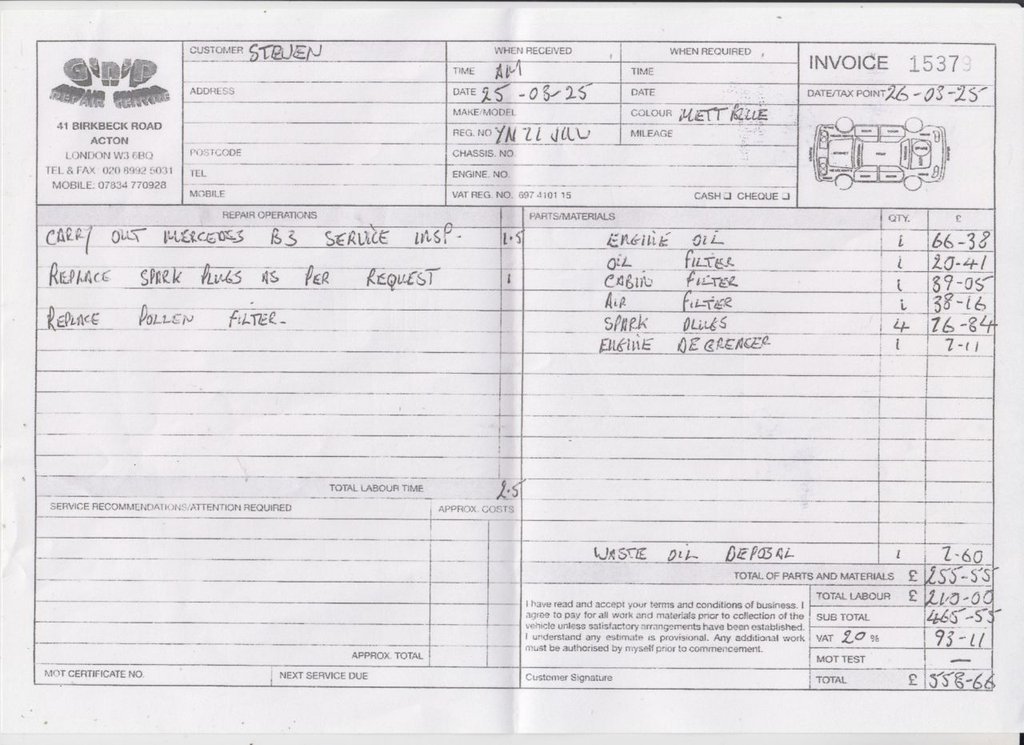 Gnip
REPAIR CENTRE
41 BIRKBECK ROAD
ACTON
LONDON W3 6BQ
TEL & FAX 020 8992 5031
MOBILE: 07834 770928
CUSTOMER STEVEN
ADDRESS
POSTCODE
TEL
MOBILE
WHEN RECEIVED
TIME AM
DATE 25-03-25
MAKE/MODEL
REG. NO
CHASSIS. NO.
ENGINE. NO.
VAT REG. NO. 697 4101 15
WHEN REQUIRED
TIME
DATE
COLOUR METT BLUE
MILEAGE
CASH CHEQUE
INVOICE 15379
DATE/TAX POINT 26-03-25
REPAIR OPERATIONS
CARRY OUT MERCEDES B3 SERVICE INSP. 1.5
REPLACE SPARK PLUGS AS PER REQUEST 1
REPLACE POLLEN FILTER.
TOTAL LABOUR TIME 2.5
PARTS/MATERIALS QTY. £
ENGINE OIL 1 66-38
OIL FILTER 1 20-41
CABIN FILTER 1 39-05
AIR FILTER 1 38-16
SPARK PLUGS 4 76-84
ENGINE DEGREACER 1 7-11
WASTE OIL DEPOSAL 1 7-60
TOTAL OF PARTS AND MATERIALS £ 255-55
SERVICE RECOMMENDATIONS/ATTENTION REQUIRED APPROX. COSTS
APPROX. TOTAL
MOT CERTIFICATE NO. NEXT SERVICE DUE
I have read and accept your terms and conditions of business. I
agree to pay for all work and materials prior to collection of the
vehicle unless satisfactory arrangements have been established.
I understand any estimate is provisional. Any additional work
must be authorised by myself prior to commencement.
Customer Signature
TOTAL LABOUR £ 210-00
SUB TOTAL 465-55
VAT 20 % 93-11
MOT TEST —
TOTAL £ 558-66